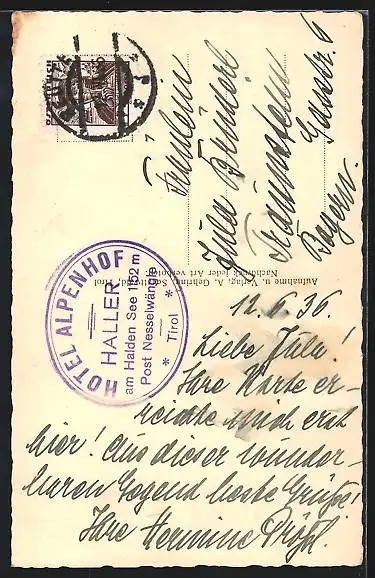 Fräulein
Jula Brüderl
Traunstein
Gasstr. 6
Bayern.
Aufnahme u. Verlag: A. Gehring, Schattwald, Tirol
Nachdruck jeder Art verboten.
HOTEL ALPENHOF
HALLER
am Halden See 1152 m
Post Nesselwängle
* Tirol *
12.6.36.
Liebe Jula!
Ihre Karte er-
reichte mich erst
hier! Aus dieser wunder-
baren Gegend beste Grüße!
Ihre Hermine